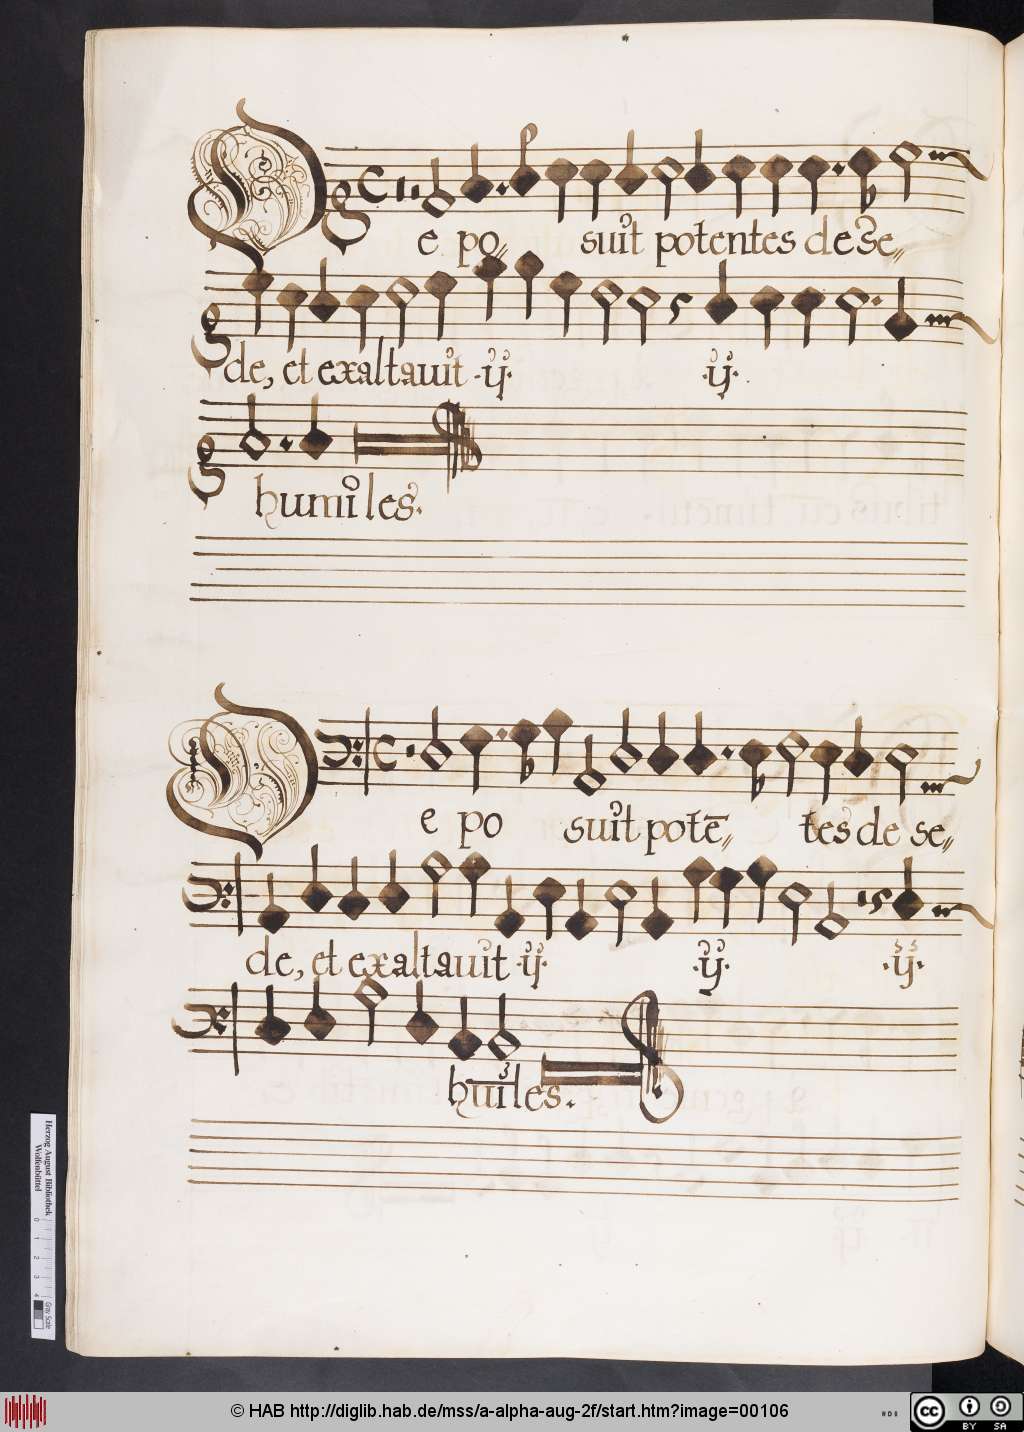 De po suit potentes de se
de, et exaltauit ·ij· ·ij·
humiles.
De po suit potē tes de se
de, et exaltauit ·ij· ·ij· ·ij·
huiles.
Herzog August Bibliothek
Wolfenbüttel
0 1 2 3 4
Gray Scale
© HAB http://diglib.hab.de/mss/a-alpha-aug-2f/start.htm?image=00106
cc BY SA